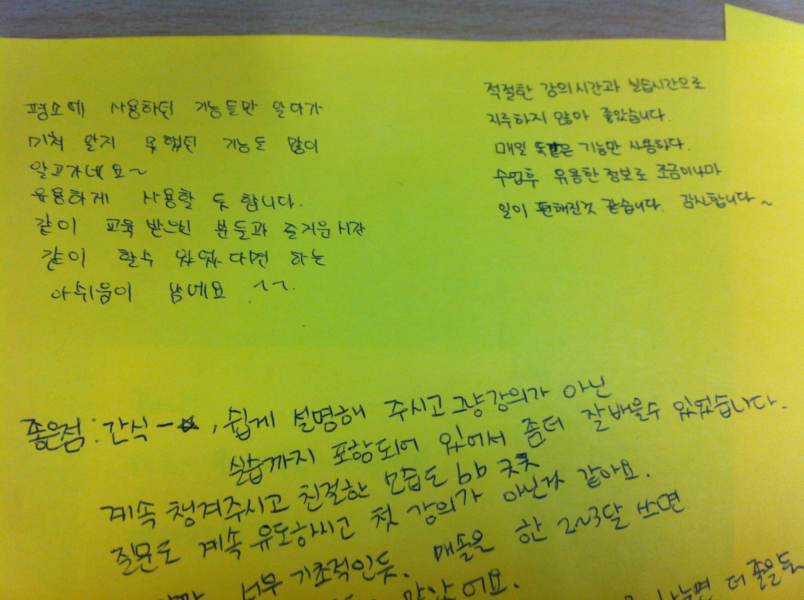 평소에 사용하던 기능들만 알다가
미쳐 알지 못했던 기능도 많이
알고가네요~
유용하게 사용할 듯 합니다.
같이 교육 받으신 분들과 즐거운 시간
같이 할수 있었다면 하는
아쉬움이 남네요 ^^.
적절한 강의시간과 실습시간으로
지루하지 않아 좋았습니다.
매일 똑같은 기능만 사용하다.
수업후 유용한 정보로 조금이나마
일이 편해진것 같습니다. 감사합니다~
좋은점: 간식 , 쉽게 설명해 주시고 그냥 강의가 아닌
실습까지 포함되어 있어서 좀더 잘배울수 있었습니다.
계속 챙겨주시고 친절한 모습도 bb 굿굿
질문도 계속 유도하시고 첫 강의가 아닌거 같아요.
너무 기초적인듯. 매솔은 한 2~3달 쓰면
많았어요.
더 좋을듯